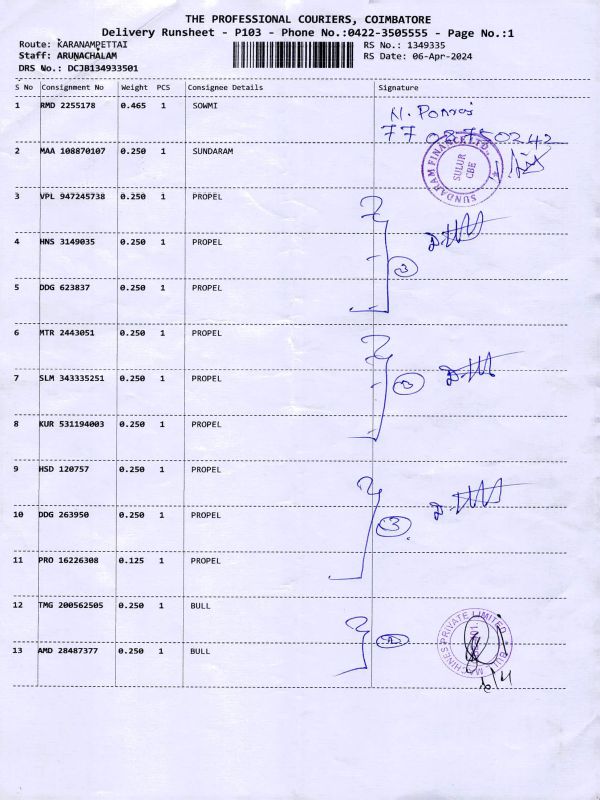 THE PROFESSIONAL COURIERS, COIMBATORE
Delivery Runsheet - P103 - Phone No.:0422-3505555 - Page No.:1
Route: KARANAMPETTAI RS No.: 1349335
Staff: ARUNACHALAM RS Date: 06-Apr-2024
DRS No.: DCJB134933501
S No Consignment No Weight PCS Consignee Details Signature
1 RMD 2255178 0.465 1 SOWMI
2 MAA 108870107 0.250 1 SUNDARAM
SUNDARAM FINANCE LTD.
SULUR
CBE
3 VPL 947245738 0.250 1 PROPEL
4 HNS 3149035 0.250 1 PROPEL
3
5 DDG 623837 0.250 1 PROPEL
6 MTR 2443051 0.250 1 PROPEL
7 SLM 343335251 0.250 1 PROPEL
3
8 KUR 531194003 0.250 1 PROPEL
9 HSD 120757 0.250 1 PROPEL
10 DDG 263950 0.250 1 PROPEL
3
11 PRO 16226308 0.125 1 PROPEL
12 TMG 200562505 0.250 1 BULL
BULL MACHINES PRIVATE LIMITED
13 AMD 28487377 0.250 1 BULL
6/4